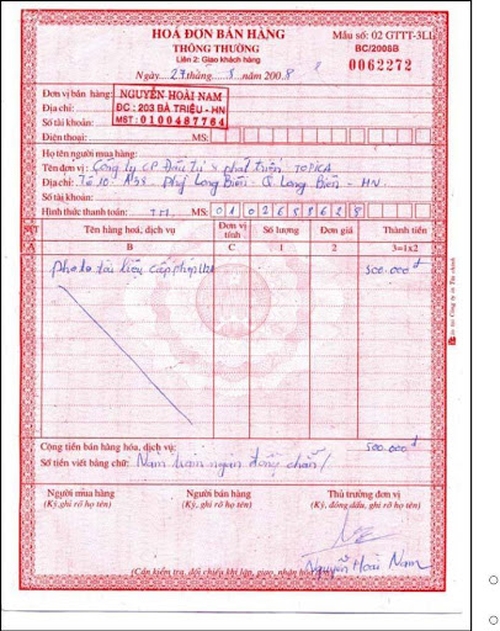 HOÁ ĐƠN BÁN HÀNG
THÔNG THƯỜNG
Liên 2: Giao khách hàng
Mẫu số: 02 GTTT-3LL
BC/2008B
0062272
Ngày...27 tháng...5...năm 2008
Đơn vị bán hàng: NGUYỄN HOÀI NAM
Địa chỉ: ĐC : 203 BÀ TRIỆU - HN
Số tài khoản: MST : 0100487764
Điện thoại: MS:
Họ tên người mua hàng:
Tên đơn vị: Công ty CP Đầu tư & phát triển TOPICA
Địa chỉ: Tổ 10 - Long Biên - Q Long Biên - HN
Số tài khoản:
Hình thức thanh toán: TM MS: 01 02658628
STT Tên hàng hoá, dịch vụ Đơn vị tính Số lượng Đơn giá Thành tiền
A B C 1 2 3=1x2
photo tài liệu 500.000đ
Cộng tiền bán hàng hóa, dịch vụ: 500.000đ
Số tiền viết bằng chữ: Năm trăm ngàn đồng chẵn/
Người mua hàng Người bán hàng Thủ trưởng đơn vị
(Ký, ghi rõ họ tên) (Ký, ghi rõ họ tên) (Ký, đóng dấu, ghi rõ họ tên)
Nguyễn Hoài Nam
(Cần kiểm tra, đối chiếu khi lập, giao, nhận hóa